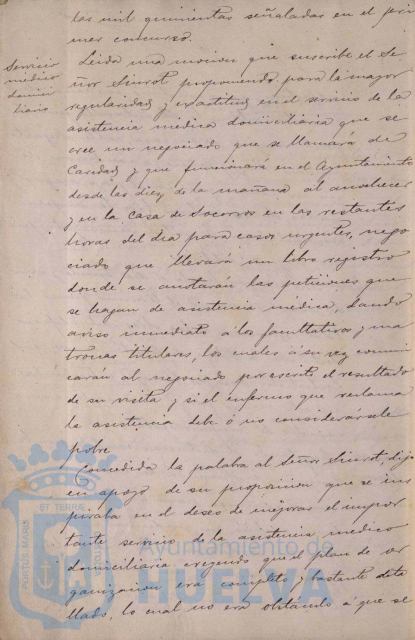 tas mil quinientas señaladas en el pri
mer concurso.
Servicio
médico
domici
liario
Leida una mocion que suscribe el Se
ñor Siurot proponiendo para la mayor
regularidad y exactitud en el servicio de la
asistencia médica domiciliaria que se
cree un negociado que se llamará de
Caridad y que funcionará en el Ayuntamiento
desde las diez de la mañana al anochecer
y en la Casa de Socorros en las restantes
horas del dia para casos urgentes, nego
ciado que llevará un libro registro
donde se anotarán las peticiones que
se hagan de asistencia médica, dando
aviso inmediato á los facultativos y ma
tronas titulares, los cuales a su vez comuni
carán al negociado por escrito el resultado
de su visita y si el enfermo que reclama
la asistencia debe ó no considerársele
pobre.
Concedida la palabra al Señor Siurot, dijo
en apoyo de su proposicion que se ins
piraba en el deseo de mejorar el impor
tante servicio de la asistencia médico
domiciliaria creyendo que el plan de or
ganizacion era completo y bastante deta
llado, lo cual no era obstáculo á que se
PORTUS MARIS
ET TERRAE
Ayuntamiento de
HUELVA